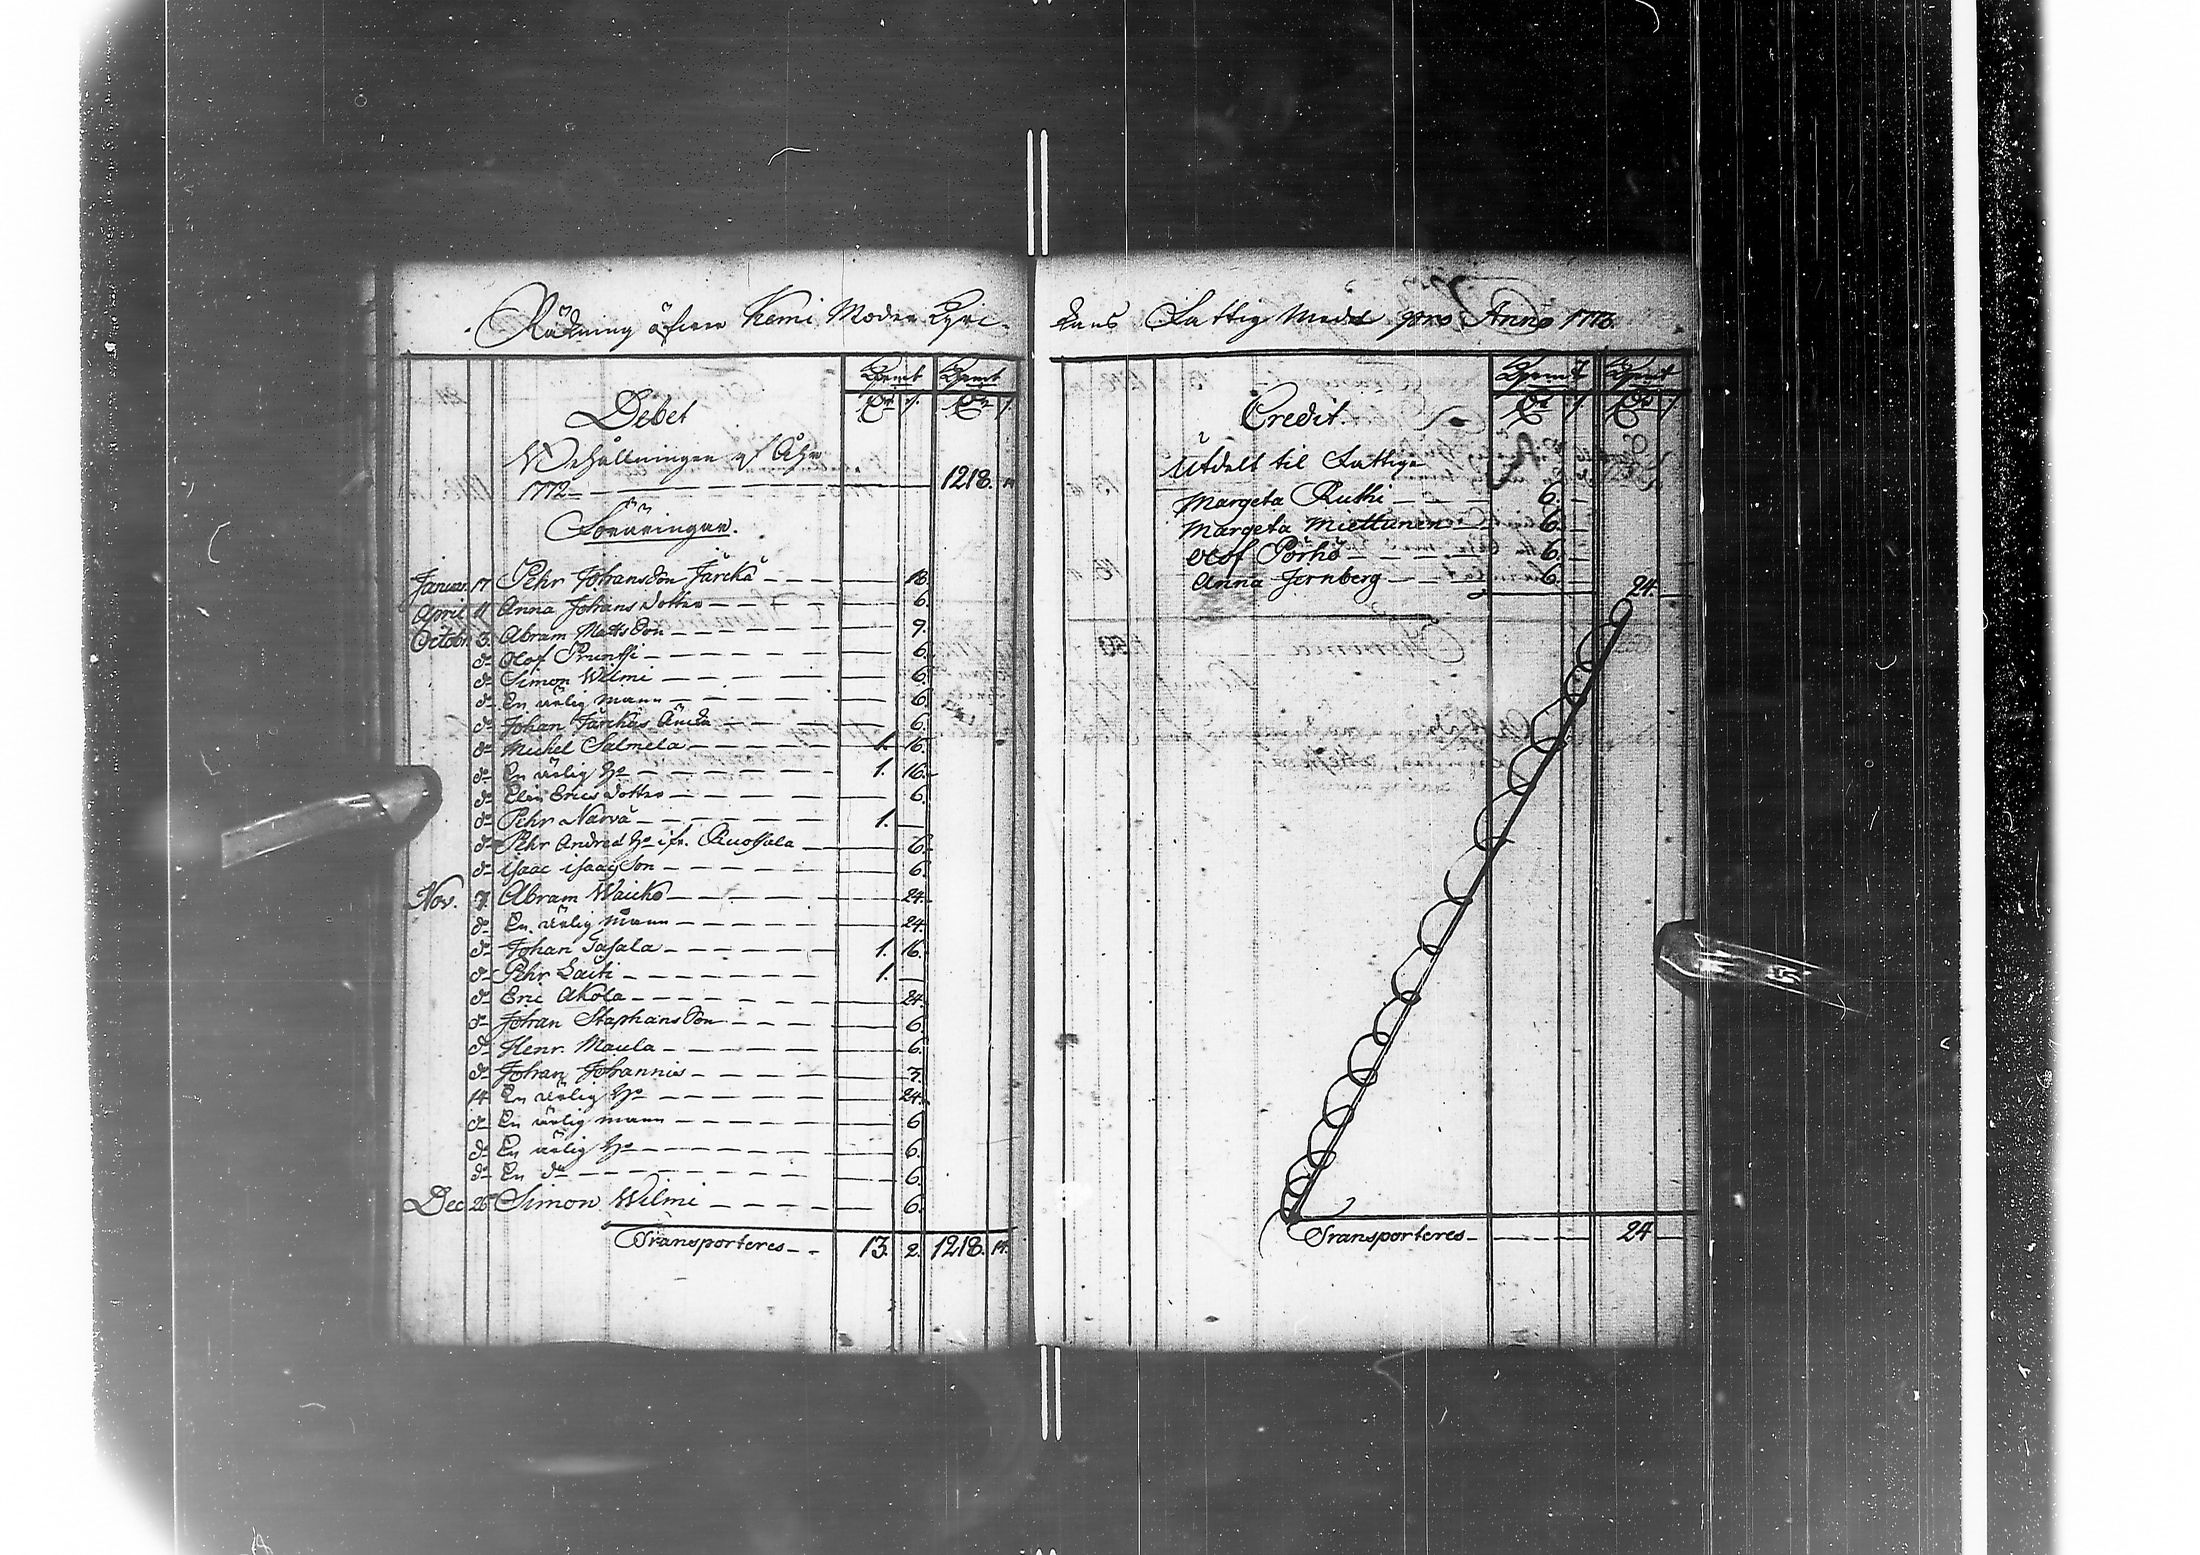 Räkning öfwer Kemi Moder Kyrc-
Debet
Kpmt Kpmt
Behållningen af Åhr
1772 — 1218. 14
Föräringar.
Januar. 17 Pehr Johansson Järckä — 18.
April 11 Anna Johans dotter — 6.
Octobr. 3. Abram Matts Son — 9.
do Olof Pruntsi — 6.
do Simon Wilmi — 6.
do En ärlig mann — 6.
do Johan Järckäs Äncka — 6.
do Michel Salmela — 1. 16.
do En ärlig Ho — 1. 16.
do Elin Erics dotter — 6.
do Pehr Narva — 1. —
do Pehr Andrea Ho ifr. Ruottala — 6.
do Isaac Isaacs Son — 6.
Nov. 7. Abram Waicko — 24.
do En ärlig mann — 24.
do Johan Tasala — 1. 16.
do Pehr Laiti — 1. —
do Eric Akola — 24.
do Johan Staphans Son — 6.
do Henr. Maula — 6.
do Johan Johannis — 3.
14 En ärlig Ho — 24.
do En ärlig mann — 6
do En ärlig Ho — 6.
do En do — 6.
Dec. 26 Simon Wilmi — 6.
Transporteres — 13. 2. 1218. 14.
kans Fattig Medel pro Anno 1773.
Credit.
Kpmt Kpmt
Utdelt til Fattige
Margeta Ruthi — 6. —
Margeta Miettunen — 6. —
Olof Pörhö — 6. —
Anna Jernberg — 6. — 24. —
Transporteres — 24 —